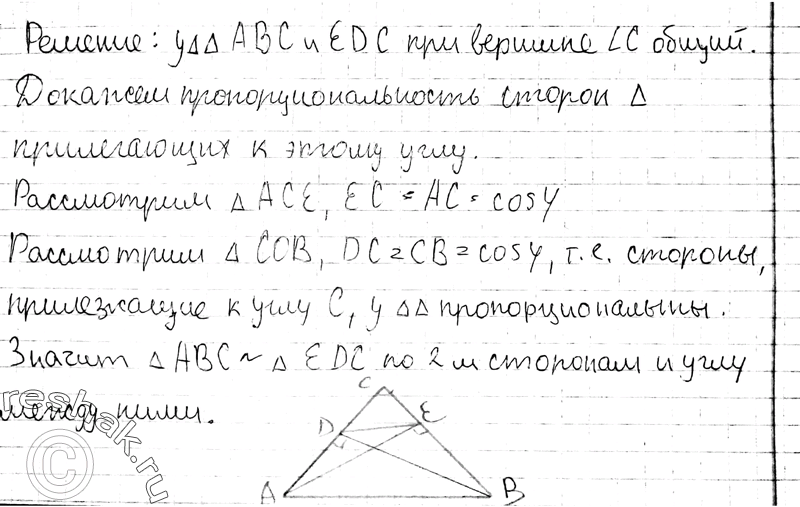 Решение: у ΔΔ ABC и EDC при вершине ∠C общий.
Докажем пропорциональность сторон Δ
прилегающих к этому углу.
Рассмотрим Δ ACE, EC = AC = cosγ
Рассмотрим Δ COB, DC = CB = cosγ, т.е. стороны,
прилежащие к углу C, у ΔΔ пропорциональны.
Значит Δ ABC ~ Δ EDC по 2м сторонам и углу
между ними.
C
D
E
A
B
© reshak.ru